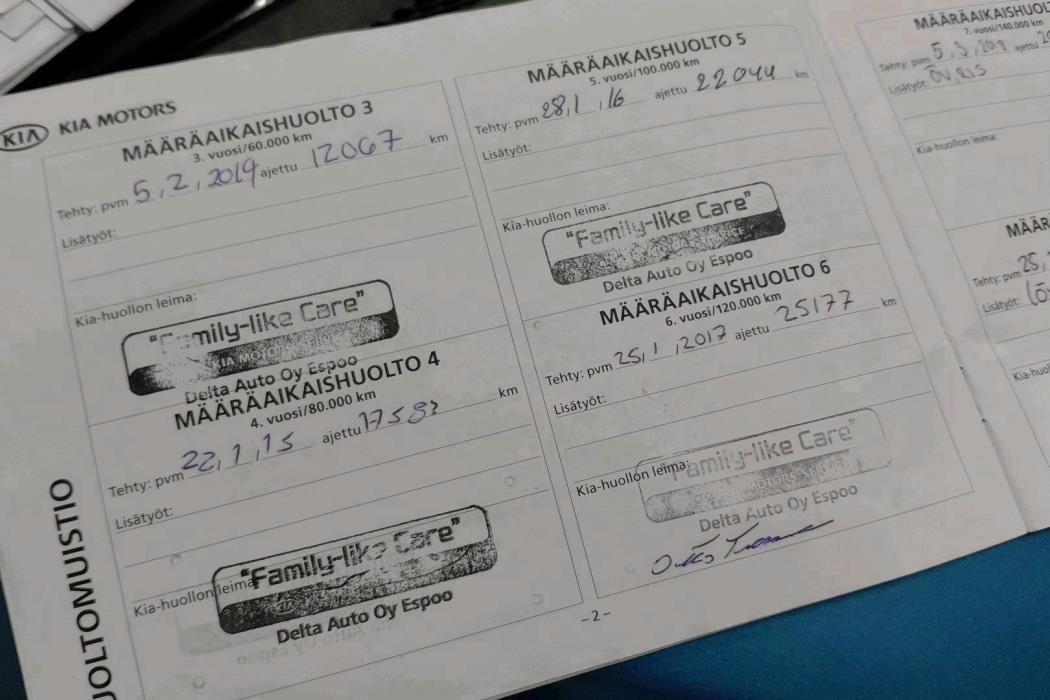 KIA KIA MOTORS
MÄÄRÄAIKAISHUOLTO 3
3. vuosi/60.000 km
Tehty: pvm 5,2,2014 ajettu 12067 km
Lisätyöt:
Kia-huollon leima:
"Family-like Care"
KIA MOTORS SERVICE
Delta Auto Oy Espoo
MÄÄRÄAIKAISHUOLTO 4
4. vuosi/80.000 km
Tehty: pvm 22,1,15 ajettu 17583 km
Lisätyöt:
Kia-huollon leima:
"Family-like Care"
Delta Auto Oy Espoo
MÄÄRÄAIKAISHUOLTO 5
5. vuosi/100.000 km
Tehty: pvm 28,1,16 ajettu 22044 km
Lisätyöt:
Kia-huollon leima:
"Family-like Care"
Delta Auto Oy Espoo
MÄÄRÄAIKAISHUOLTO 6
6. vuosi/120.000 km
Tehty: pvm 25,1,2017 ajettu 25177 km
Lisätyöt:
Kia-huollon leima:
"Family-like Care"
KIA MOTORS SERVICE
Delta Auto Oy Espoo
-2-
UOLTOMUISTIO
MÄÄRÄAIKAISHUOL
7. vuosi/140.000 km
Tehty: pvm 5,3,2018 ajettu
Lisätyöt:
Kia-huollon leima:
MÄÄR
Tehty: pvm 25,
Lisätyöt:
Kia-huo